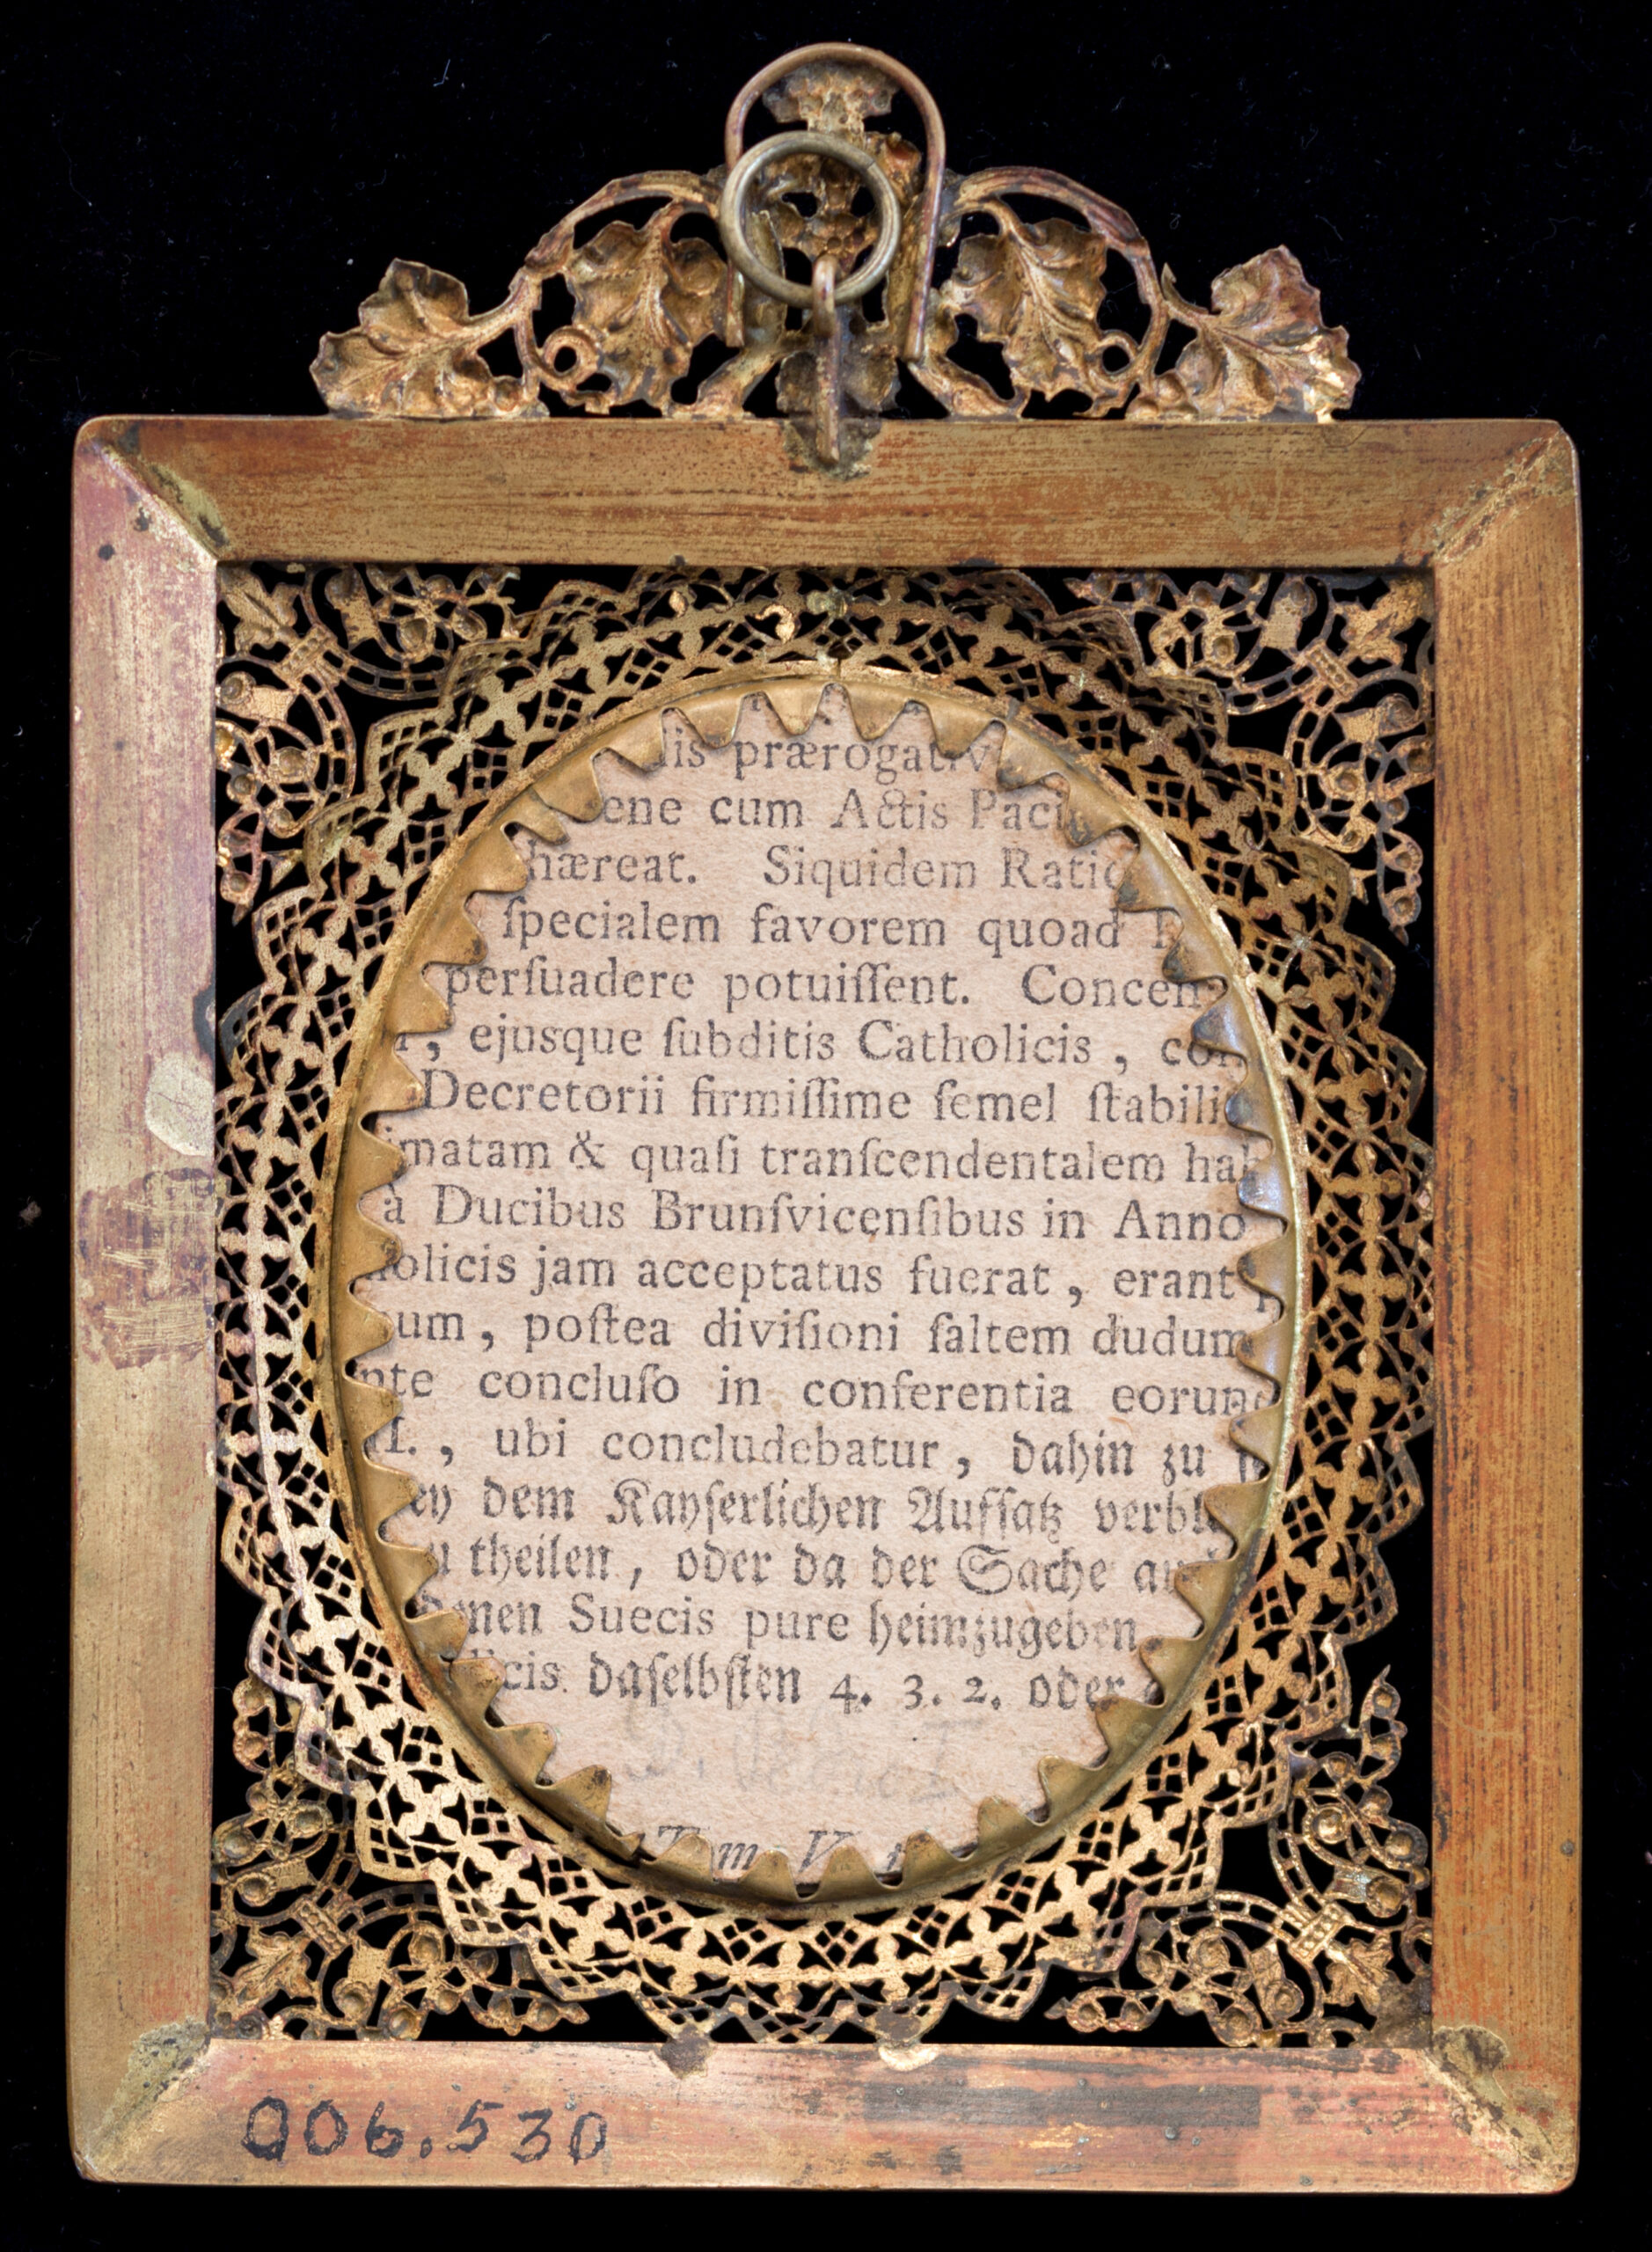 lis prærogativ
ene cum Actis Paci
hæreat. Siquidem Ratio
ſpecialem favorem quoad
perſuadere potuiſſent. Concern
, ejusque ſubditis Catholicis, con
Decretorii firmiſſime ſemel ſtabili
imatam & quaſi tranſcendentalem hab
à Ducibus Brunſvicenſibus in Anno
olicis jam acceptatus fuerat, erant
um, poſtea diviſioni ſaltem dudum
nte concluſo in conferentia eorund
I., ubi concludebatur, dahin zu
ey dem Kayſerlichen Aufſatz verbl
u theilen, oder da der Sache an
denen Suecis pure heimzugeben
licis daſelbſten 4. 3. 2. oder
006.530